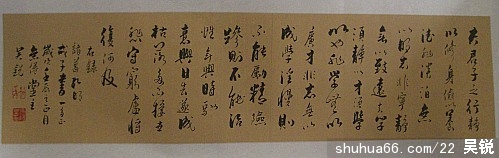 夫君子之行静
以修身俭以养
德非淡泊无
以明志非宁静
无以致远夫学
须静也才须学
也非学无以
广才非志无以
成学淫慢则
不能励精险
躁则不能治
性年与时驰
意与日去遂成
枯落多不接世
悲守穷庐将
复何及
右录
诸葛孔明
戒子书
正月
堂主
吴锐
shuhua66.com/22 吴锐